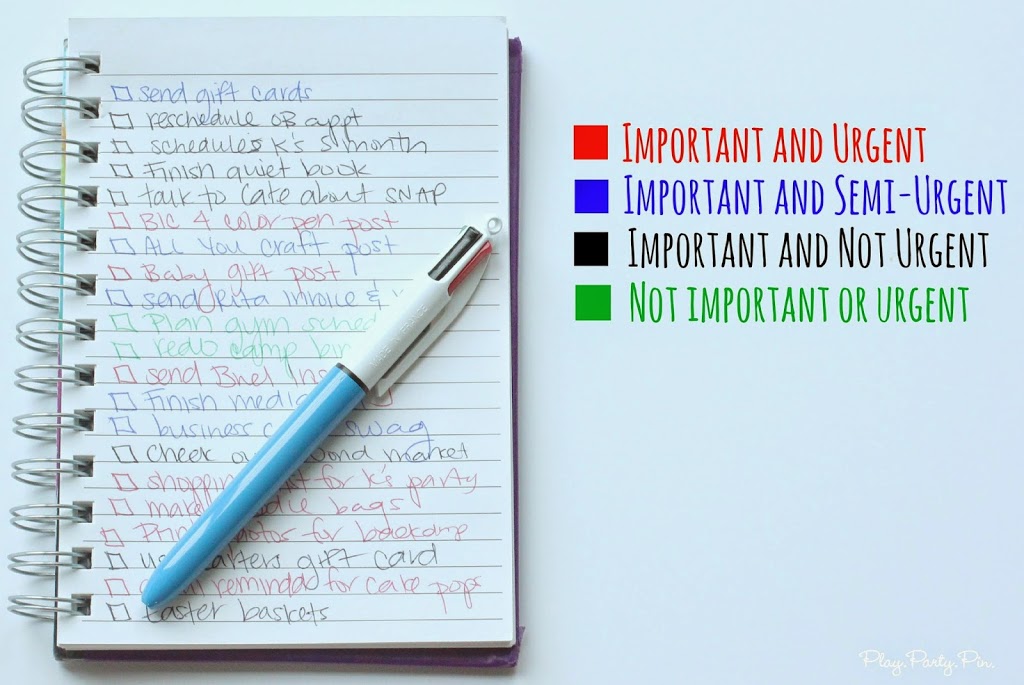 send gift cards
reschedule OB appt
schedule K's 3 month
Finish quiet book
talk to Cate about SNAP
BIC 4 color pen post
ALL You craft post
Baby gift post
send Jetta invoice &
Plan gym sched
redo camp bin
send Bnel Ins
Finish media
business c swag
Check ou ond market
shopping list for K's party
make bags
Print photos for bookcamp
us arters gift card
remind for cake pops
Easter baskets
IMPORTANT AND URGENT
IMPORTANT AND SEMI-URGENT
IMPORTANT AND NOT URGENT
NOT IMPORTANT OR URGENT
Play.Party.Pin.